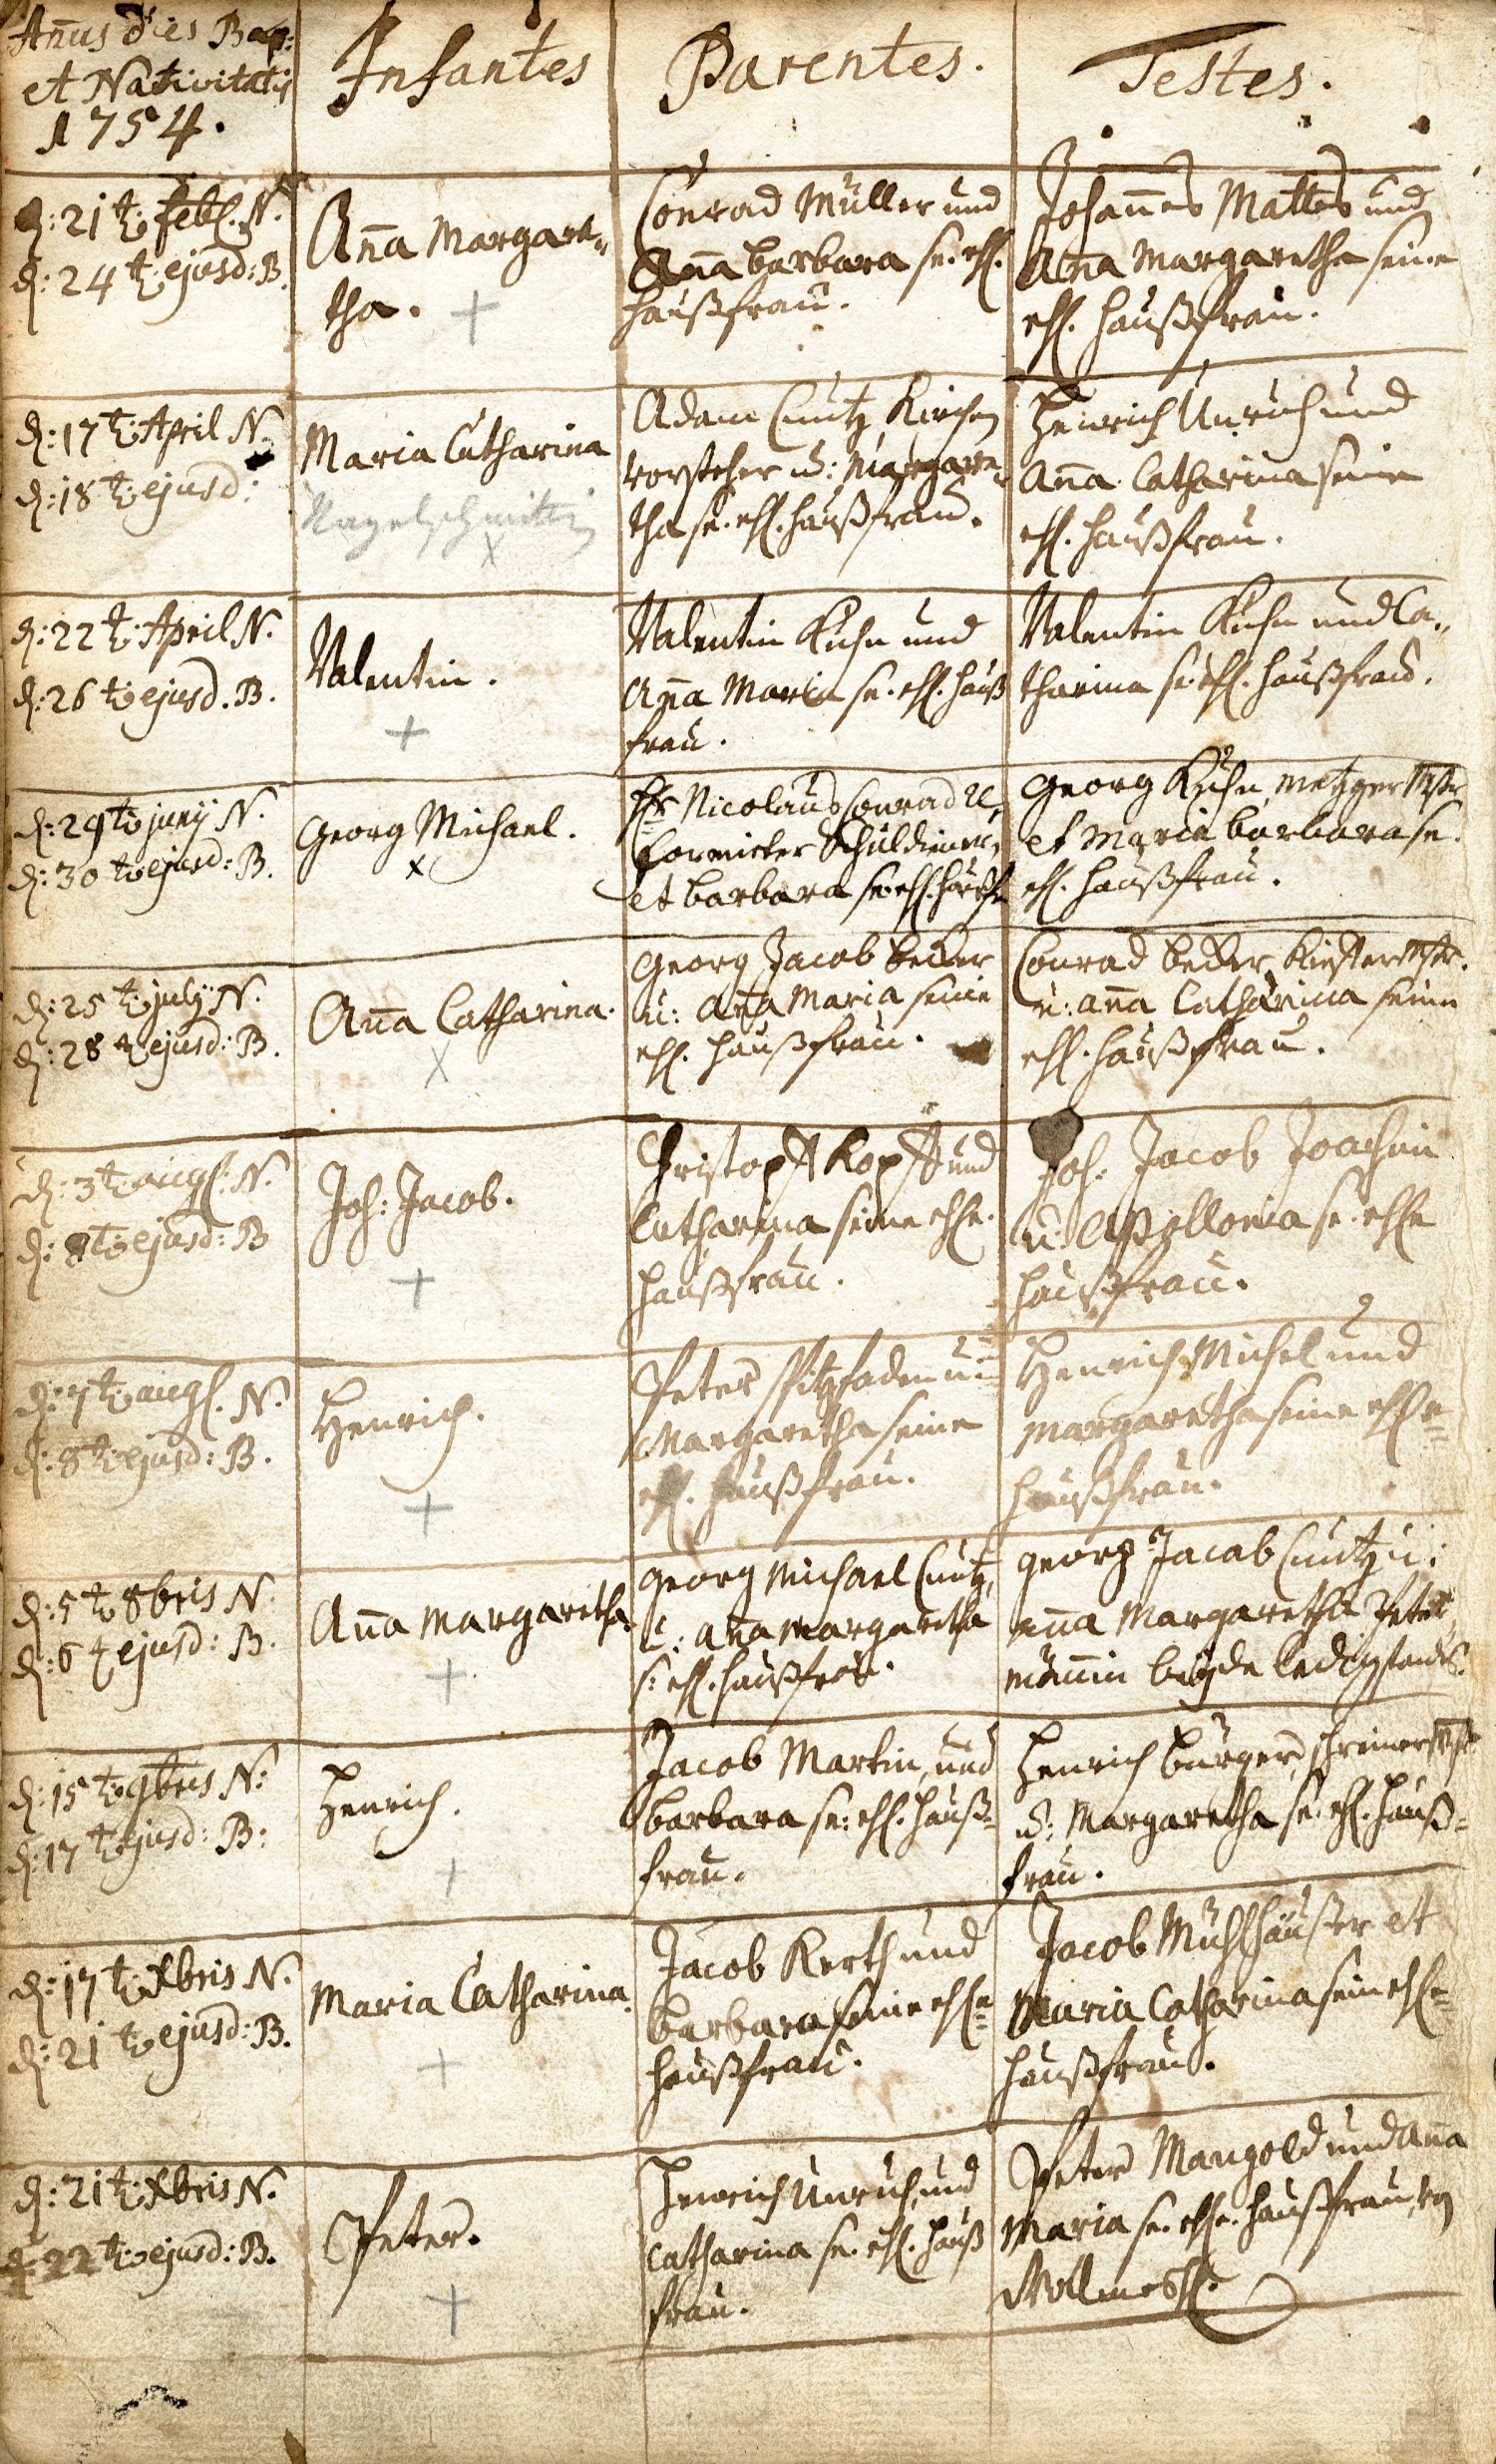 Añus dies Bap:
et Nativitatis
1754.
Infantes
Parentes.
Testes.
d: 21 t. febr. N.
d: 24 t. ejusd: B.
Añna Margare„
tha.
Conrad Müller und
Anna Barbara se. ehl.
haußfrau.
Johannes Mattes und
Anna Margaretha seine
ehl. haußfrau.
d: 17 t. April N.
d: 18 t. ejusd:
Maria Catharina
Nagelschmittin
Adam Cuntz, Kirchen
vorsteher u: Margare„
tha se. ehl. haußfrau.
Heinrich Unruh und
Anna Catharina seine
ehl. haußfrau.
d: 22 t. April N.
d: 26 t. ejusd. B.
Valentin.
Valentin Kuhn und
Anna Maria se. ehl. hauß
frau.
Valentin Kuhn und Ca„
tharina se. ehl. haußfrau.
d: 29 t. junij N.
d: 30 t. ejusd: B.
Georg Michael.
Hr Nicolaus Conrad
Schuldiener,
et Barbara se. ehl. haußfr
Georg Kuhn, Metzger Mstr
et Maria Barbara se.
ehl. haußfrau.
d: 25 t. julij N.
d: 28 t. ejusd: B.
Anna Catharina.
Georg Jacob Becker
u: Anna Maria seine
ehl. haußfrau.
Conrad Becker, Küfler Mstr.
u: Anna Catharina seine
ehl. haußfrau.
d: 3 t. augl. N.
d: t. ejusd: B
Joh: Jacob.
Christoph Kopff und
Catharina seine ehe.
haußfrau.
Joh. Jacob Joachim
u: Apollonia se. ehe
haußfrau.
d: 7 t. augl. N.
d: 8 t. ejusd: B.
Henrich.
Peter Spitzfaden u:
Margaretha seine
ehl. haußfrau.
Henrich Michel und
Margaretha seine ehe=
haußfrau.
d: 5 t. 8bris N.
d: 6 t. ejusd: B.
Anna Margaretha.
Georg Michael Cuntz,
u: Anna Margaretha
s: ehl. haußfrau.
Georg Jacob Cuntz u:
Anna Margaretha Peter
männin beyde ledig stands.
d: 15 t. 9bris N:
d: 17 t. ejusd: B:
Henrich.
Jacob Martin, und
Barbara se: ehl. hauß=
frau.
Henrich Bürger, schreiner Mstr
u: Margaretha se. ehl. hauß=
frau.
d: 17 t. Xbris N.
d: 21 t. ejusd: B.
Maria Catharina.
Jacob Kerth und
Barbara seine ehe=
haußfrau.
Jacob Mühlhäußer et
Maria Catharina sein ehe=
haußfrau.
d: 21 t. Xbris N.
d: 22 t. ejusd: B.
Peter.
Henrich Unruh, und
Catharina se. ehl. hauß
frau.
Peter Mangold und Anna
Maria se. ehe. haußfrau, von